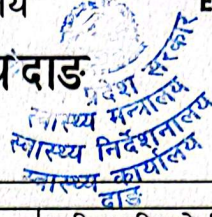 य
दाङ
प्रदेश सरकार
स्वास्थ्य मन्त्रालय
स्वास्थ्य निर्देशनालय
स्वास्थ्य कार्यालय
दाङ